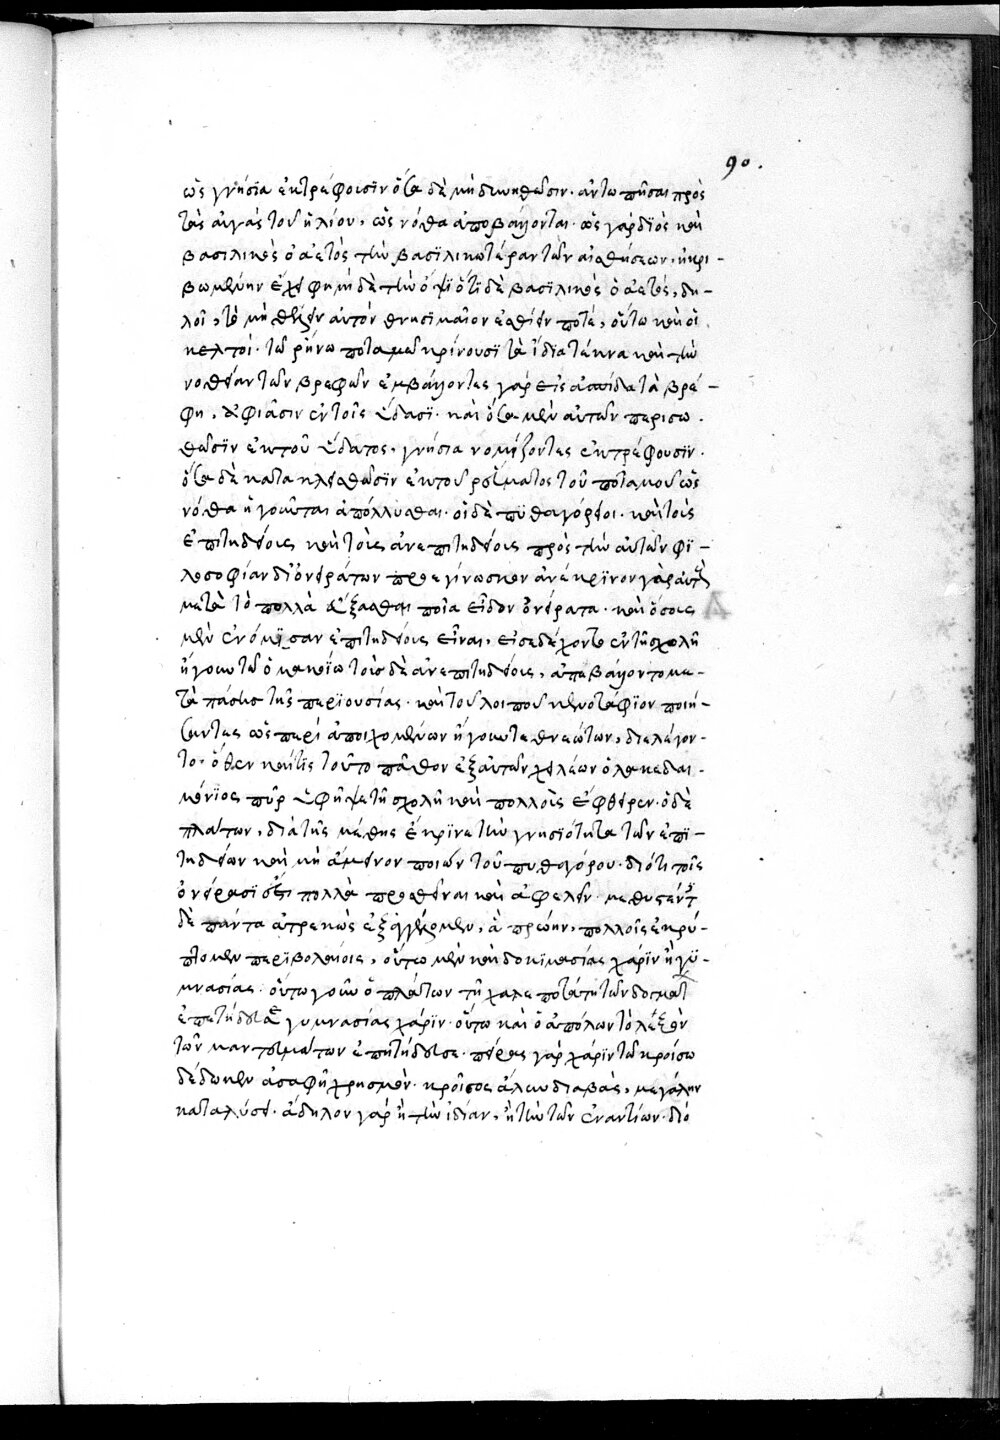 90.
ὡς γνήσϊα ἐκτρέφουσϊν ὅσα δὲ μὴ δυνηθῶσιν· ἀντωπῆσαι πρὸς
τὰς αὐγὰς τοῦ ἡλίου, ὡς νόθα ἀποβάλλονται· ὡς γὰρ δϊὸς καὶ
βασιλικὸς ὁ ἀετὸς τὴν βασϊλικωτέραν τῶν αἰσθήσεων, ἠκρι-
βωμένην ἔχει φημὴ δὲ τὴν ὄψϊ ὅτϊ δὲ βασϊλικὸς ὁ ἀετὸς, δη-
λοῖ, τὸ μὴ θέλειν αὐτὸν θνησϊμαῖον ἐσθίειν ποτέ, οὕτω καὶ οἱ
κελτοί· τῶ ῥήνω ποταμῶ κρίνουσϊ τὰ ἴδϊα τέκνα καὶ τὴν
νοθείαν τῶν βρεφῶν ἐμβάλλοντες γὰρ εἰς ἀσπίδα τὰ βρέ-
φη, ἀφιᾶσιν ἐν τοῖς ὕδασϊ· καὶ ὅσα μὲν αὐτῶν περισω
θῶσϊν ἐκ τοῦ ὕδατος, γνήσια νομίζοντες ἐκτρέφουσϊν·
ὅσα δὲ κατακλεισθῶσϊν ἐκ τοῦ ῥεύματος τοῦ ποταμοῦ ὡς
νόθα ἡγοῦνται ἀπόλλυσθαι· οἱ δὲ πϋθαγόρειοι· καὶ τοὺς
ἐπιτηδείους καὶ τοὺς ἀνεπιτηδείους πρὸς τὴν αὐτῶν φϊ-
λοσοφίαν δϊ ὀνειράτων προεγίνωσκον ἀνέκρϊνον γὰρ αὐτοὺς
μετὰ τὸ πολλὰ διξᾶσθαι ποῖα εἶδον ὀνείρατα· καὶ ὅσους
μὲν ἐνόμϊσαν ἐπιτηδείους εἶναι, εἰσεδέχοντο ἐν τῆ σχολῆ
ἤγουν τῶ ὁμακοΐω τοὺς δὲ ἀνεπιτηδείους, ἀπεβάλλοντο με-
τὰ πάσης τῆς περϊουσίας· καὶ τοῦ λοιποῦ κενοτάφϊον ποιή-
σαντες ὡς περὶ ἀποιχομένων ἤγουν τεθνεώτων, διελέγον-
το· ὅθεν καί τις τοῦτο παθὼν ἐξ αὐτῶν χειλέων ὁ λακεδαι-
μόνϊος πῦρ ὑφῆψε τῆ σχολῆ καὶ πολλοὺς ἔφθειρεν· ὁ δὲ
πλάτων, διὰ τῆς μέθης ἔκρϊνε τὴν γνησϊότητα τῶν ἐπϊ-
τηδείων καὶ μὴ ἄμεινον ποιῶν τοῦ πυθαγόρου· διότι τοῖς
ὀνείρασϊ ἔστι πολλὰ προσθεῖναι καὶ ἀφελεῖν· μεθυσθέντες
δὲ πάντα ἀτρεκῶς ἐξαγγέλομεν, ἃ πρώην, πολλοῖς ἐκρύ-
πτομεν περϊβολαίοις, οὕτω μὲν καὶ δοκϊμασίας χάρϊν ἢ γϋ-
μνασίας· οὕτω γοῦν ὁ πλάτων τῆ χαλεποτάτη τῶν δογμάτων
ἐπετήδευσε γυμνασίας χάρϊν· οὕτω καὶ ὁ ἀπόλλων τὸ λοξὸν
τῶν μαντευμάτων ἐπητήδευσε· πείρας γὰρ χάρϊν τῶ κροίσω
δέδωκεν ἀσαφῆ χρησμὸν· κροῖσος ἅλυν διαβὰς, μεγάλην
καταλύσει· ἄδηλον γὰρ ἢ τὴν ἰδίαν, ἢ τὴν τῶν ἐναντίων· διό